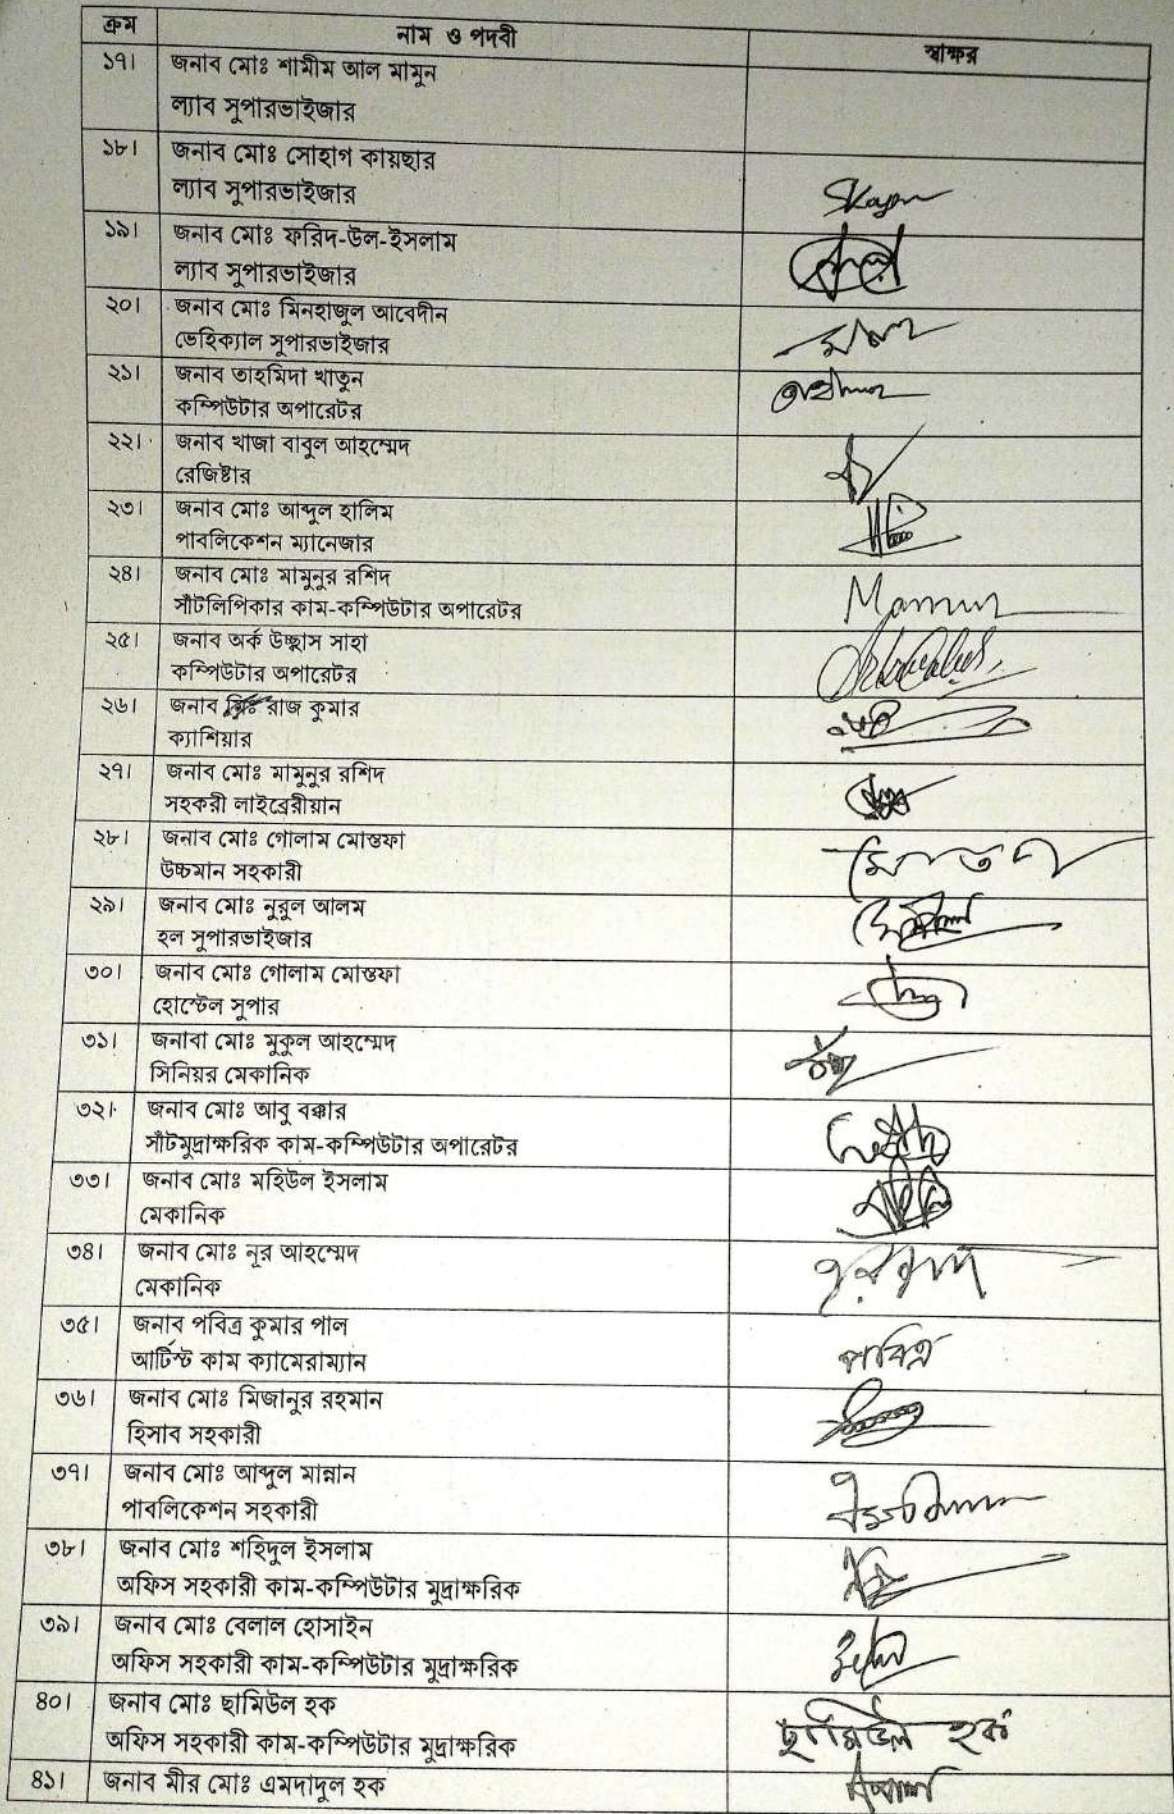 ক্রম নাম ও পদবী স্বাক্ষর
১৭। জনাব মোঃ শামীম আল মামুন
ল্যাব সুপারভাইজার
১৮। জনাব মোঃ সোহাগ কায়ছার
ল্যাব সুপারভাইজার
১৯। জনাব মোঃ ফরিদ-উল-ইসলাম
ল্যাব সুপারভাইজার
২০। জনাব মোঃ মিনহাজুল আবেদীন
ভেহিক্যাল সুপারভাইজার
২১। জনাব তাহমিদা খাতুন
কম্পিউটার অপারেটর
২২। জনাব খাজা বাবুল আহম্মেদ
রেজিষ্টার
২৩। জনাব মোঃ আব্দুল হালিম
পাবলিকেশন ম্যানেজার
২৪। জনাব মোঃ মামুনুর রশিদ
সাঁটলিপিকার কাম-কম্পিউটার অপারেটর
Mamun
২৫। জনাব অর্ক উচ্ছ্বাস সাহা
কম্পিউটার অপারেটর
২৬। জনাব রাজ কুমার
ক্যাশিয়ার
২৭। জনাব মোঃ মামুনুর রশিদ
সহকরী লাইব্রেরীয়ান
২৮। জনাব মোঃ গোলাম মোস্তফা
উচ্চমান সহকারী
২৯। জনাব মোঃ নুরুল আলম
হল সুপারভাইজার
৩০। জনাব মোঃ গোলাম মোস্তফা
হোস্টেল সুপার
৩১। জনাবা মোঃ মুকুল আহম্মেদ
সিনিয়র মেকানিক
৩২। জনাব মোঃ আবু বক্কার
সাঁটমুদ্রাক্ষরিক কাম-কম্পিউটার অপারেটর
৩৩। জনাব মোঃ মহিউল ইসলাম
মেকানিক
৩৪। জনাব মোঃ নূর আহম্মেদ
মেকানিক
৩৫। জনাব পবিত্র কুমার পাল
আর্টিস্ট কাম ক্যামেরাম্যান
পবিত্র
৩৬। জনাব মোঃ মিজানুর রহমান
হিসাব সহকারী
৩৭। জনাব মোঃ আব্দুল মান্নান
পাবলিকেশন সহকারী
৩৮। জনাব মোঃ শহিদুল ইসলাম
অফিস সহকারী কাম-কম্পিউটার মুদ্রাক্ষরিক
৩৯। জনাব মোঃ বেলাল হোসাইন
অফিস সহকারী কাম-কম্পিউটার মুদ্রাক্ষরিক
৪০। জনাব মোঃ ছামিউল হক
অফিস সহকারী কাম-কম্পিউটার মুদ্রাক্ষরিক
ছামিউল হক
৪১। জনাব মীর মোঃ এমদাদুল হক